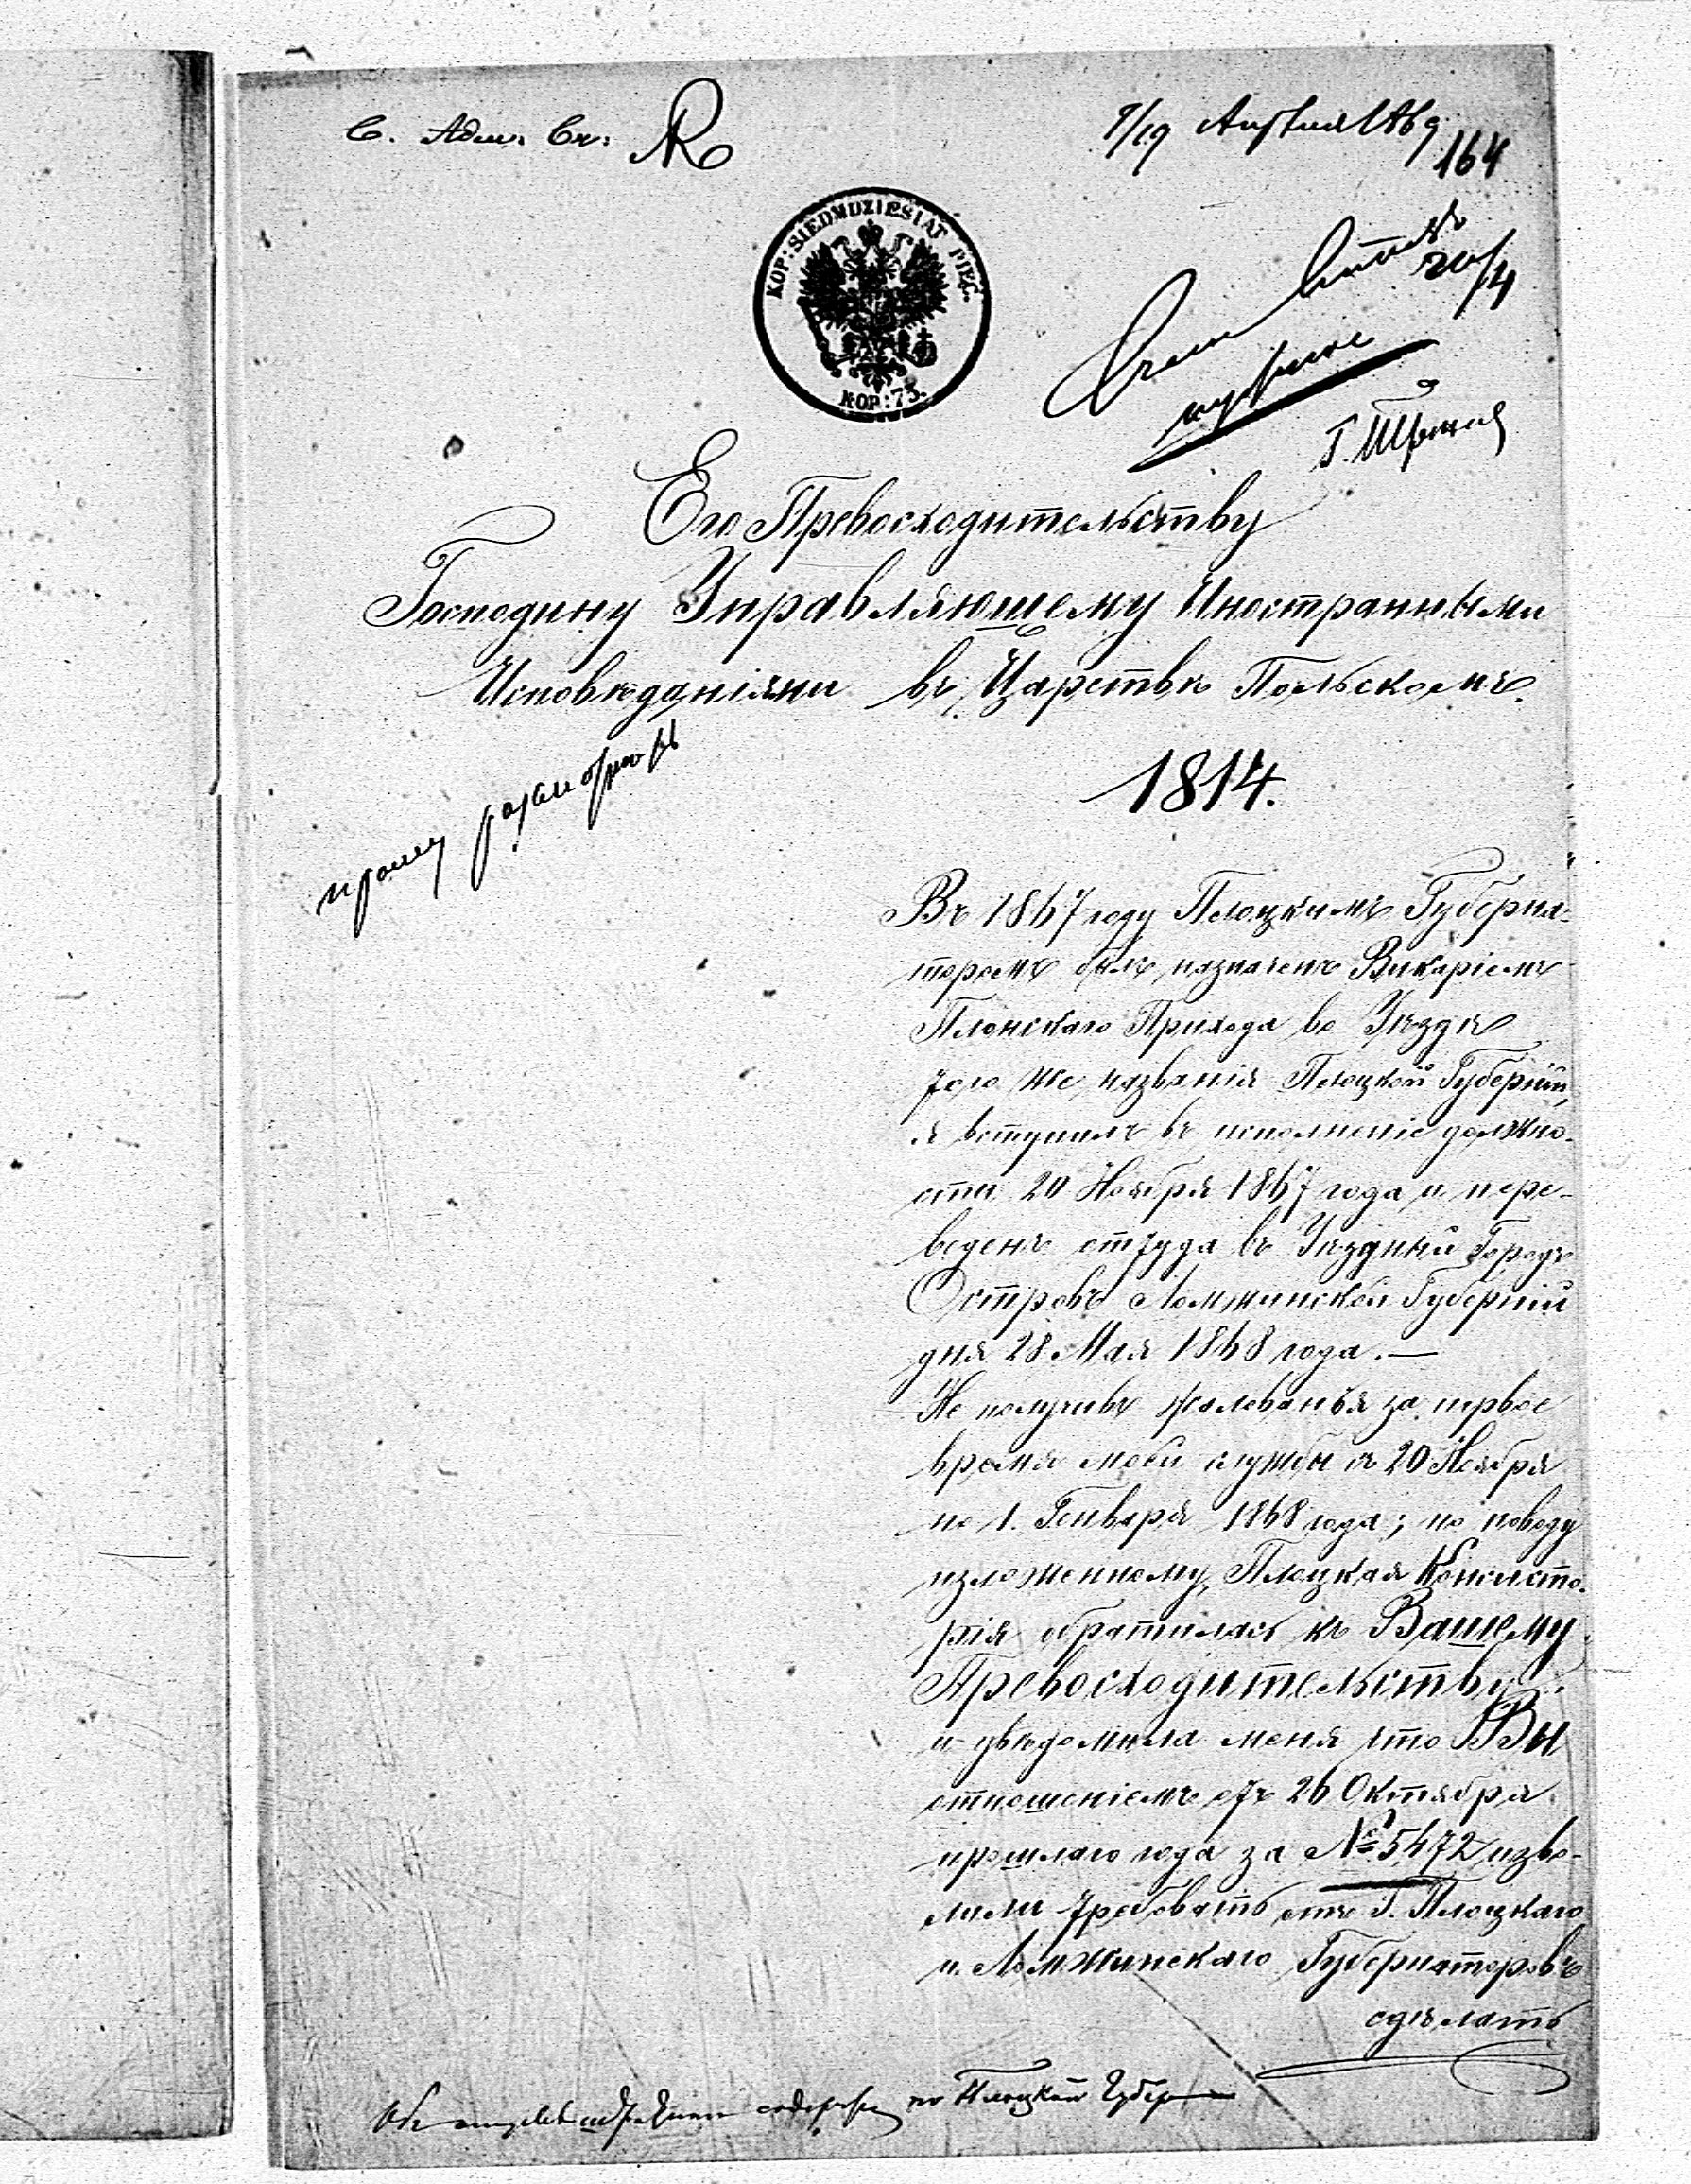 7/19 Апрѣля 1869
164
KOP: SIEDMDZIESIAT PIĘĆ.
KOP: 75.
20/4
Его Превосходительству
Господину Управляющему Иностранными
Исповѣданіями въ Царствѣ Польскомъ.
прошу
1814.
Въ 1867 году Плоцкимъ Губерна-
торомъ былъ назначенъ Викаріемъ
Плонскаго Прихода во Уѣздѣ
того же названія Плоцкой Губерніи,
я вступилъ въ исполненіе должно-
сти 20 Ноября 1867 года и пере-
веденъ оттуда въ Уѣздный Городъ
Островъ Ломжинской Губерніи
дня 28 Мая 1868 года. —
Не получивъ жалованья за первое
время моей службы съ 20 Ноября
по 1. Генваря 1868 года; по поводу
изложенному, Плоцкая Консисто-
рія обратилась къ Вашему
Превосходительству
и увѣдомила меня что Вы
отношеніемъ отъ 26 Октября
прошлаго года за № 5472 изво-
лили требовать отъ Г. Плоцкаго
и Ломжинскаго Губернаторовъ
сдѣлать
по Плоцкой Губер